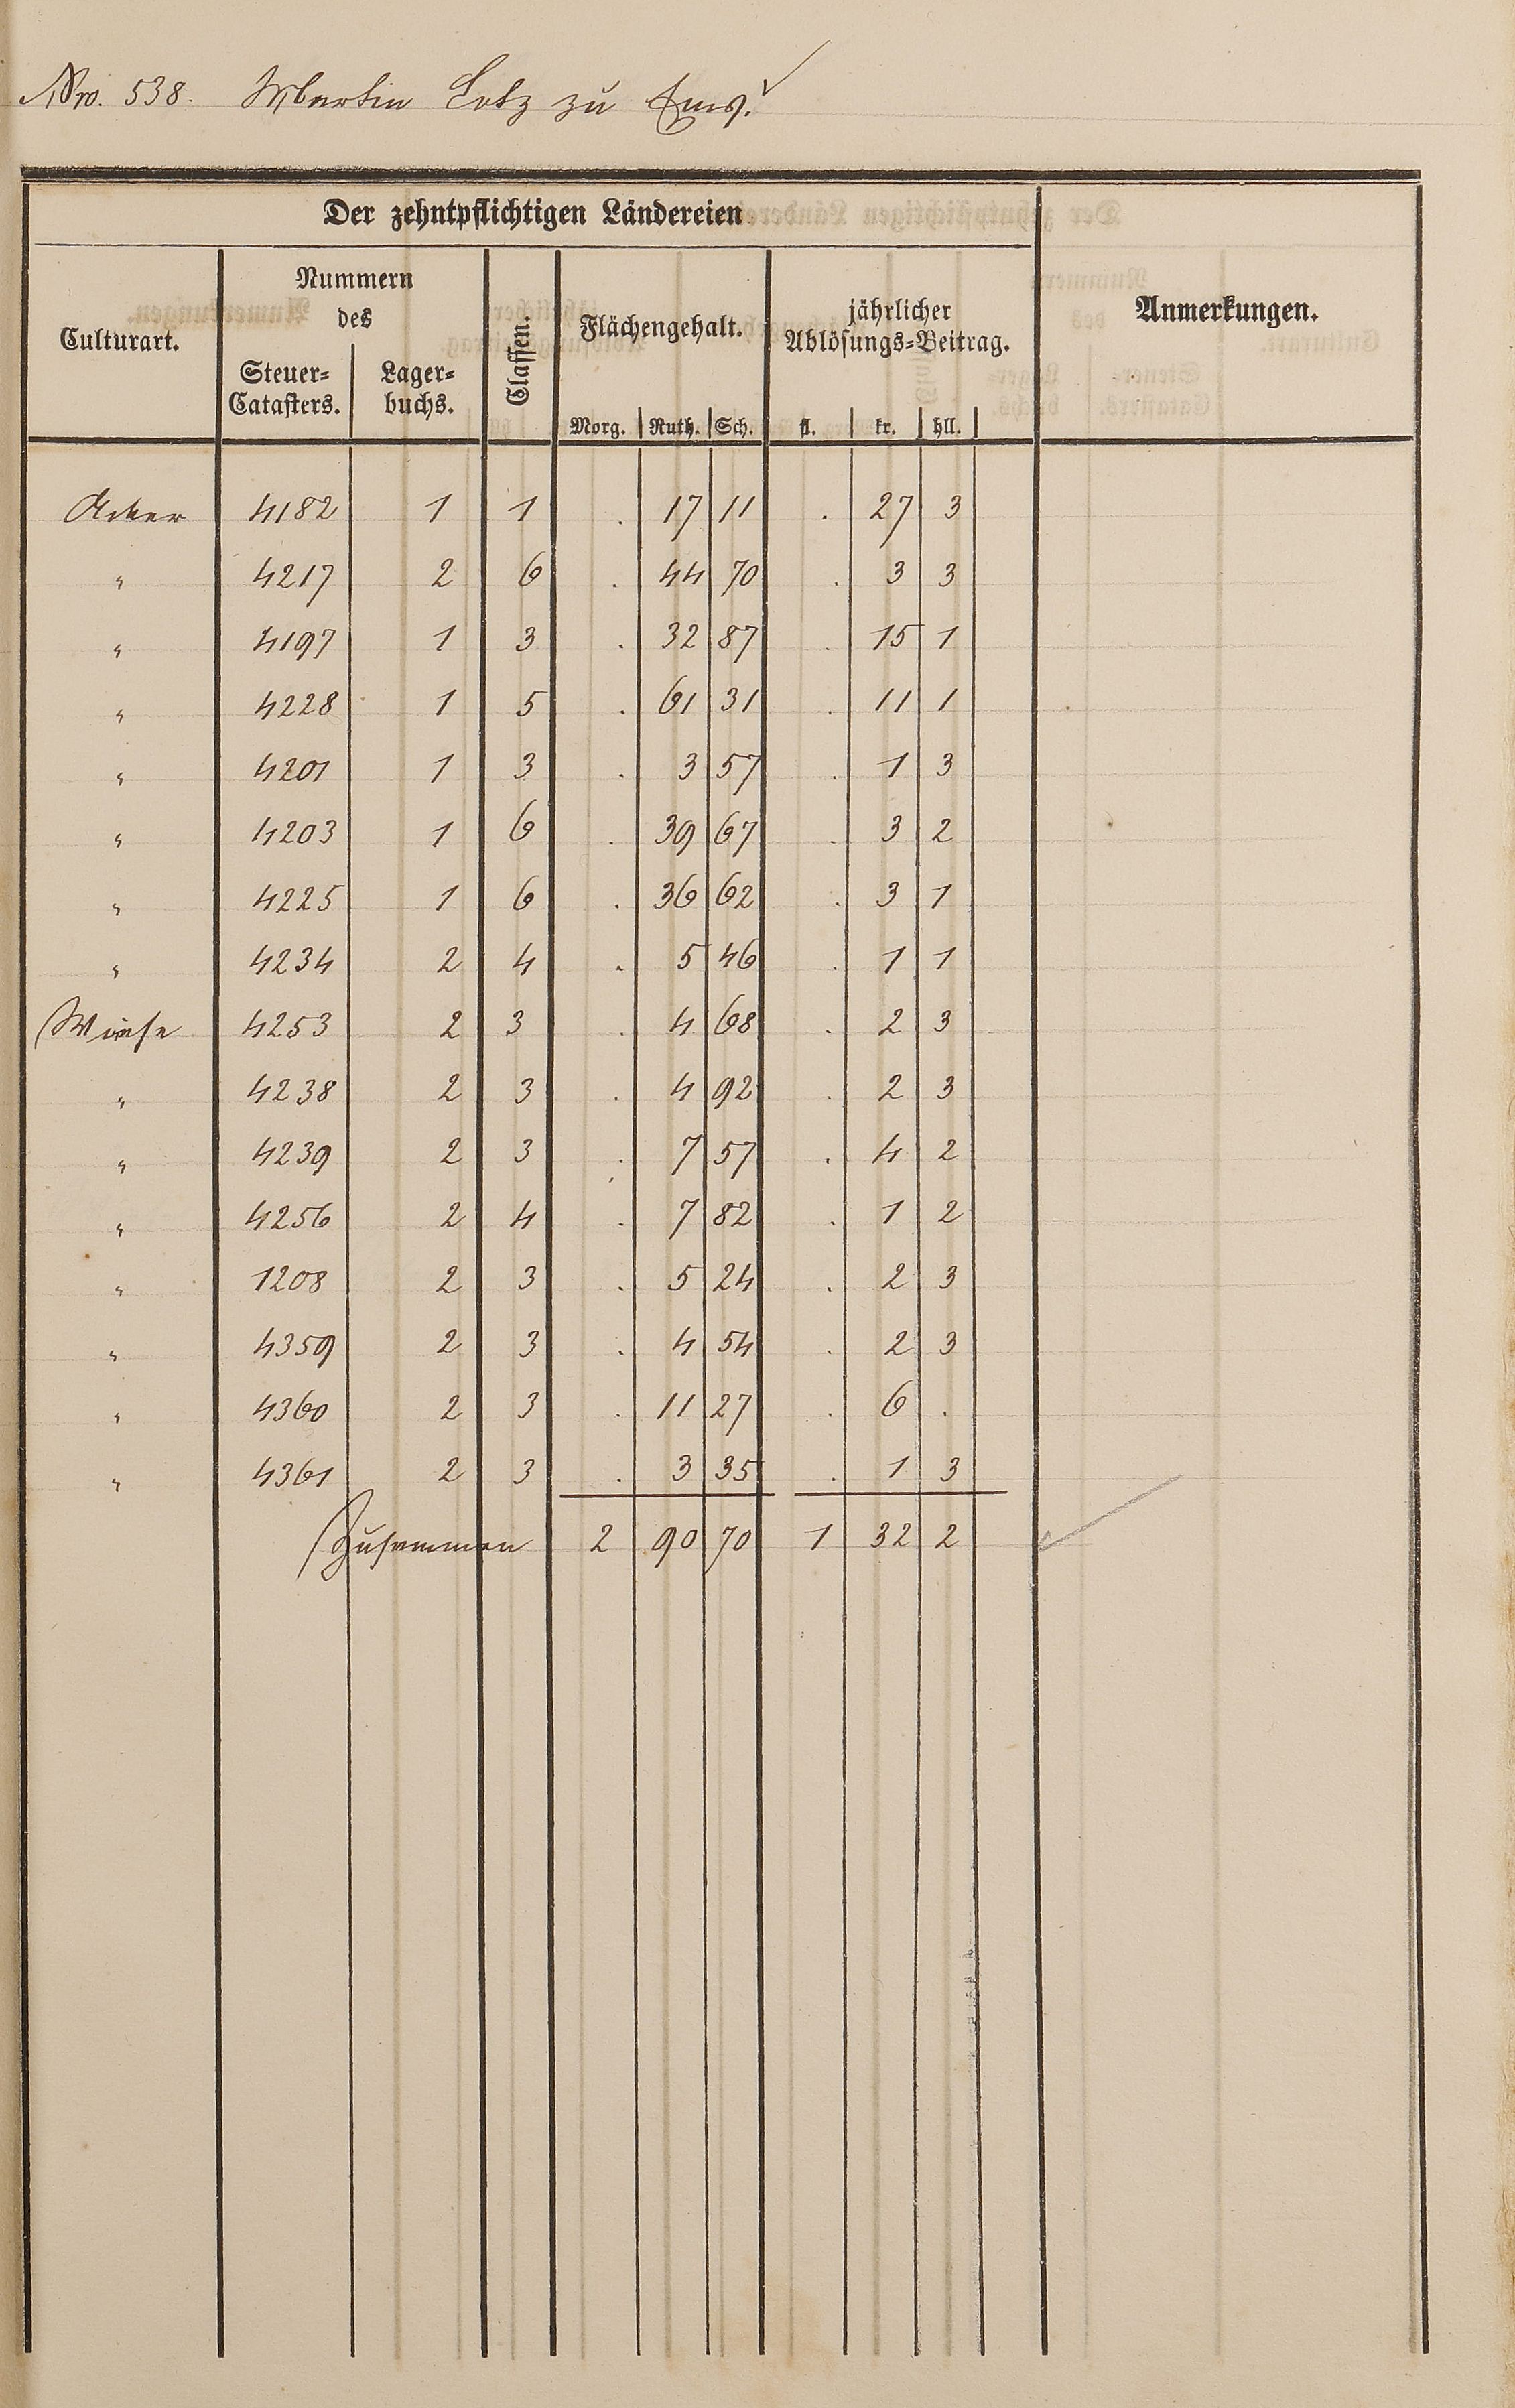 Nro. 538. Martin Lotz zu Ems.
Der zehntpflichtigen Ländereien
Culturart.
Nummern
des
Steuer-
Catasters.
Lager-
buchs.
Classen.
Flächengehalt.
Morg. Ruth. Sch.
jährlicher
Ablösungs-Beitrag.
fl. kr. hll.
Anmerkungen.
Acker 4182 1 1 . 17 11 . 27 3
" 4217 2 6 . 44 70 . 3 3
" 4197 1 3 . 32 87 . 15 1
" 4228 1 5 . 61 31 . 11 1
" 4201 1 3 . 3 57 . 1 3
" 4203 1 6 . 39 67 . 3 2
" 4225 1 6 . 36 62 . 3 1
" 4234 2 4 . 5 46 . 1 1
Wiese 4253 2 3 . 4 68 . 2 3
" 4238 2 3 . 4 92 . 2 3
" 4239 2 3 . 7 57 . 4 2
" 4256 2 4 . 7 82 . 1 2
" 1208 2 3 . 5 24 . 2 3
" 4359 2 3 . 4 54 . 2 3
" 4360 2 3 . 11 27 . 6 .
" 4361 2 3 . 3 35 . 1 3
Zusammen 2 90 70 1 32 2